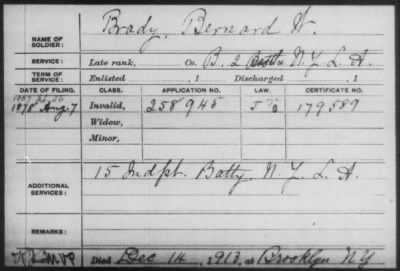 NAME OF SOLDIER: Brady, Bernard W.
SERVICE: Late rank, Co. B. 2 Battn N. Y. L. A.
TERM OF SERVICE: Enlisted , 1 Discharged , 1
DATE OF FILING. CLASS. APPLICATION NO. LAW. CERTIFICATE NO.
1878 Aug. 7 Invalid, 258945 179589
Widow,
Minor,
ADDITIONAL SERVICES: 15 Indpt. Batty. N. Y. L. A.
REMARKS:
Died Dec 14, 1913, at Brooklyn NY